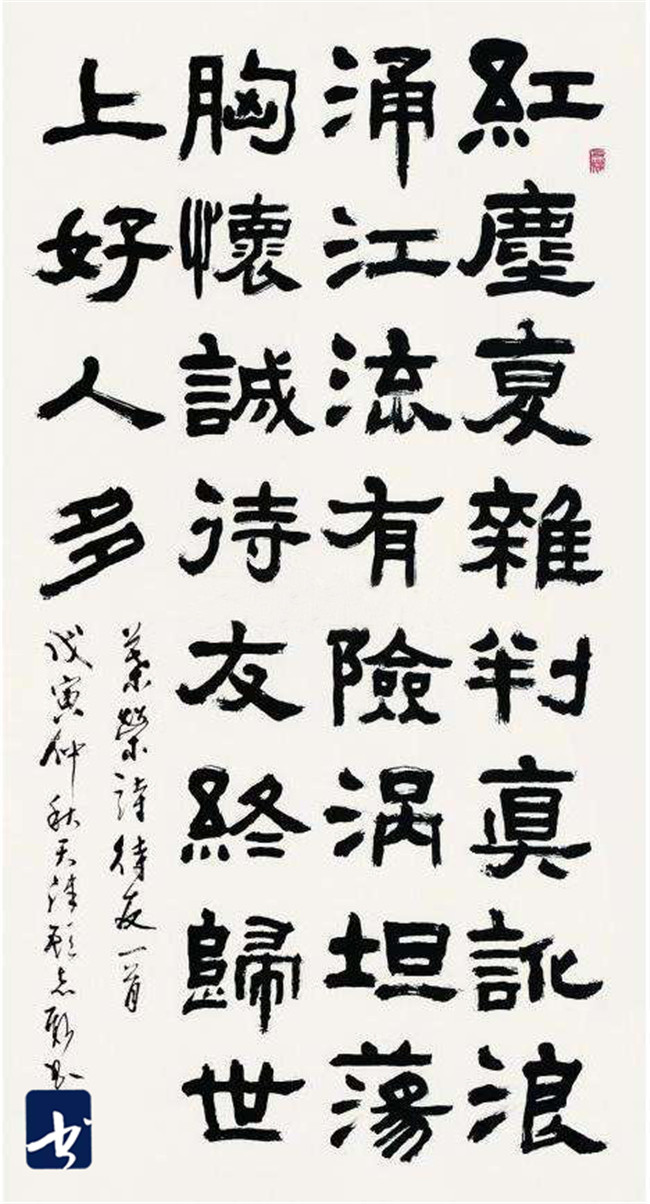 紅塵复雜判真訛浪
涌江流有險渦坦蕩
胸懷誠待友終歸世
上好人多
詩待友一首
戊寅仲秋天津顧志新书
书